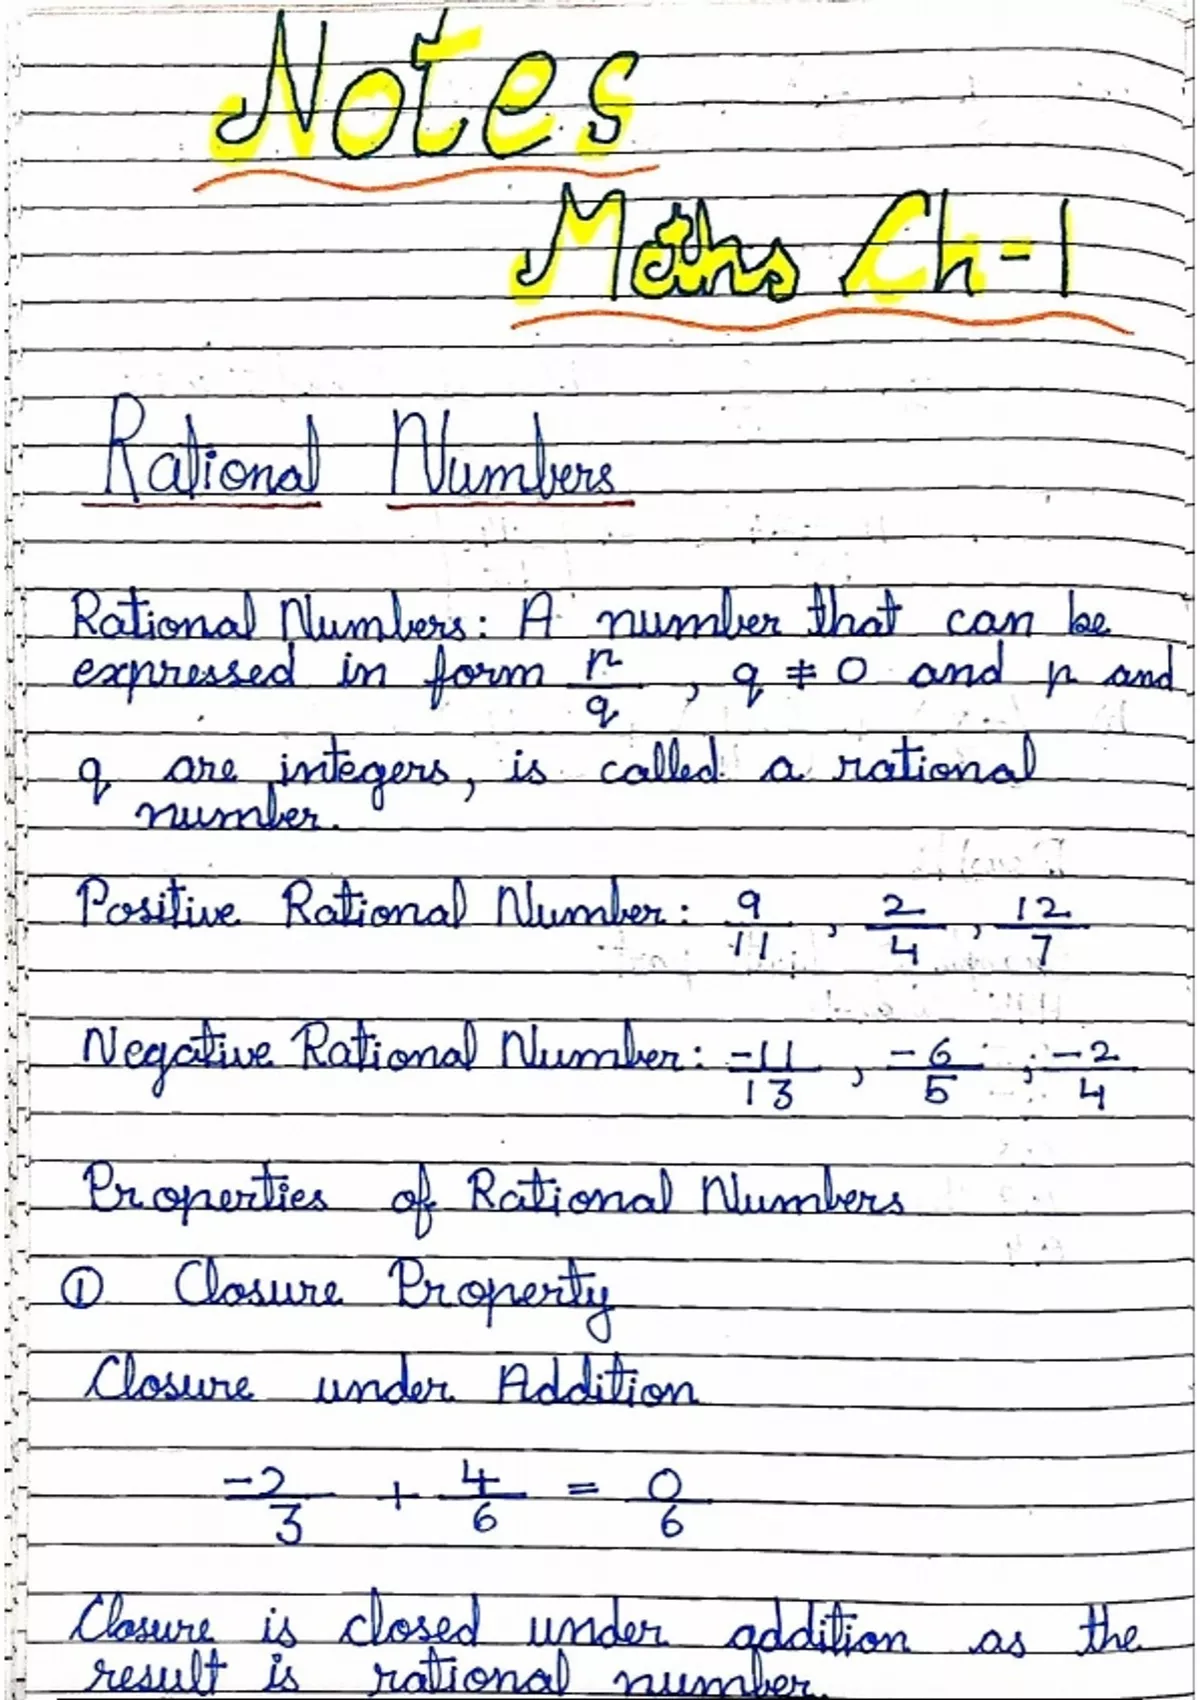 Notes
Maths Ch-1
Rational Numbers
Rational Numbers: A number that can be
expressed in form p/q, q ≠ 0 and p and
q are integers, is called a rational
number.
Positive Rational Number: 9/11, 2/4, 12/7
Negative Rational Number: -11/13, -6/5, -2/4
Properties of Rational Numbers
① Closure Property
Closure under Addition
-2/3 + 4/6 = 0/6
Closure is closed under addition as the
result is rational number.